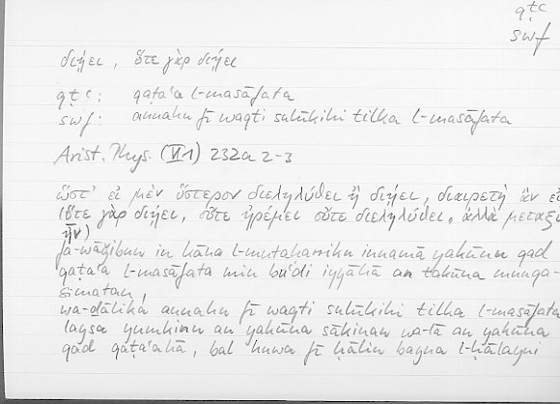 qṭʿ
swf
διῄει, ὅτε γὰρ διῄει
qṭʿ: qaṭaʿa l-masāfata
swf: annahu fī waqti sulūkihi tilka l-masāfata
Arist. Phys. (VI 1) 232a 2-3
ὥστ' εἰ μὲν ὕστερον διεληλύθει ἢ διῄει, διαιρετὴ ἂν
(ὅτε γὰρ διῄει, οὔτε ἠρέμει οὔτε διεληλύθει, ἀλλὰ μεταξὺ
ἦν)
fa-wāǧibun in kāna l-mutaḥarriku innamā yakūnu qad
qaṭaʿa l-masāfata min buʿdi iyyāhā an takūna munqa-
simatan,
wa-ḏālika annahu fī waqti sulūkihi tilka l-masāfata
laysa yumkinu an yakūna sākinan wa-lā an yakūna
qad qaṭaʿahā, bal huwa fī ḥālin bayna l-ḥālayni